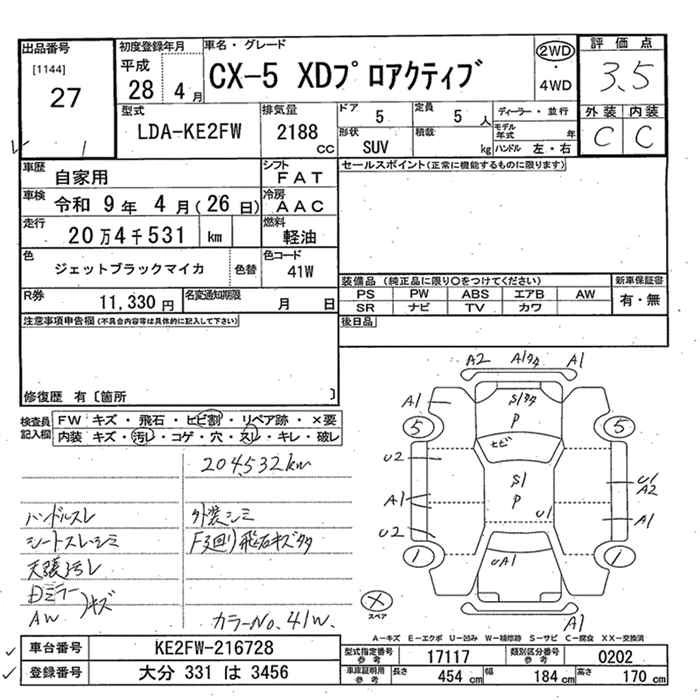 出品番号
[1144]
27
初度登録年月
平成
28 4 月
車名・グレード
CX-5 XDプロアクティブ
2WD
・
4WD
評価点
3.5
外装 内装
C C
型式
LDA-KE2FW
排気量
2188 cc
ドア
5
定員
5 人
ディーラー・並行
モデル年式 年
形状
SUV
積載
kg
ハンドル 左・右
車歴
自家用
シフト
FAT
車検
令和 9 年 4 月 (26 日)
冷房
AAC
走行
20万4千531 km
燃料
軽油
色
ジェットブラックマイカ
色替
色コード
41W
R券
11,330 円
名変通知期限
月 日
セールスポイント(正常に機能するものに限ります)
装備品 (純正品に限り○をつけてください)
PS PW ABS エアB AW
SR ナビ TV カワ
新車保証書
有・無
後日品
注意事項申告欄(不具合内容等は具体的に記入して下さい)
修復歴 有〔箇所 〕
検査員記入欄
FW キズ・飛石・ヒビ割・リペア跡・×要
内装 キズ・汚レ・コゲ・穴・スレ・キレ・破レ
204,532km
ハンドルスレ
シートスレ・シミ
天張汚レ
Dミラー
AW
キズ
外装シミ
F廻り飛石キズタタ
カラーNo.41W.
A2 A1タタ A1
A1
S1タタ
P
5 5
ヒビ
U2
S1
P
U1
A2
A1
U1
A1
U2
UA1
1 1
×
スペア
A1
A-キズ E-エクボ U-凹み W-補修跡 S-サビ C-腐食 XX-交換済
車台番号
KE2FW-216728
登録番号
大分 331 は 3456
型式指定番号
参考
17117
類別区分番号
参考
0202
車庫証明用
参考
長さ 454 cm 幅 184 cm 高さ 170 cm